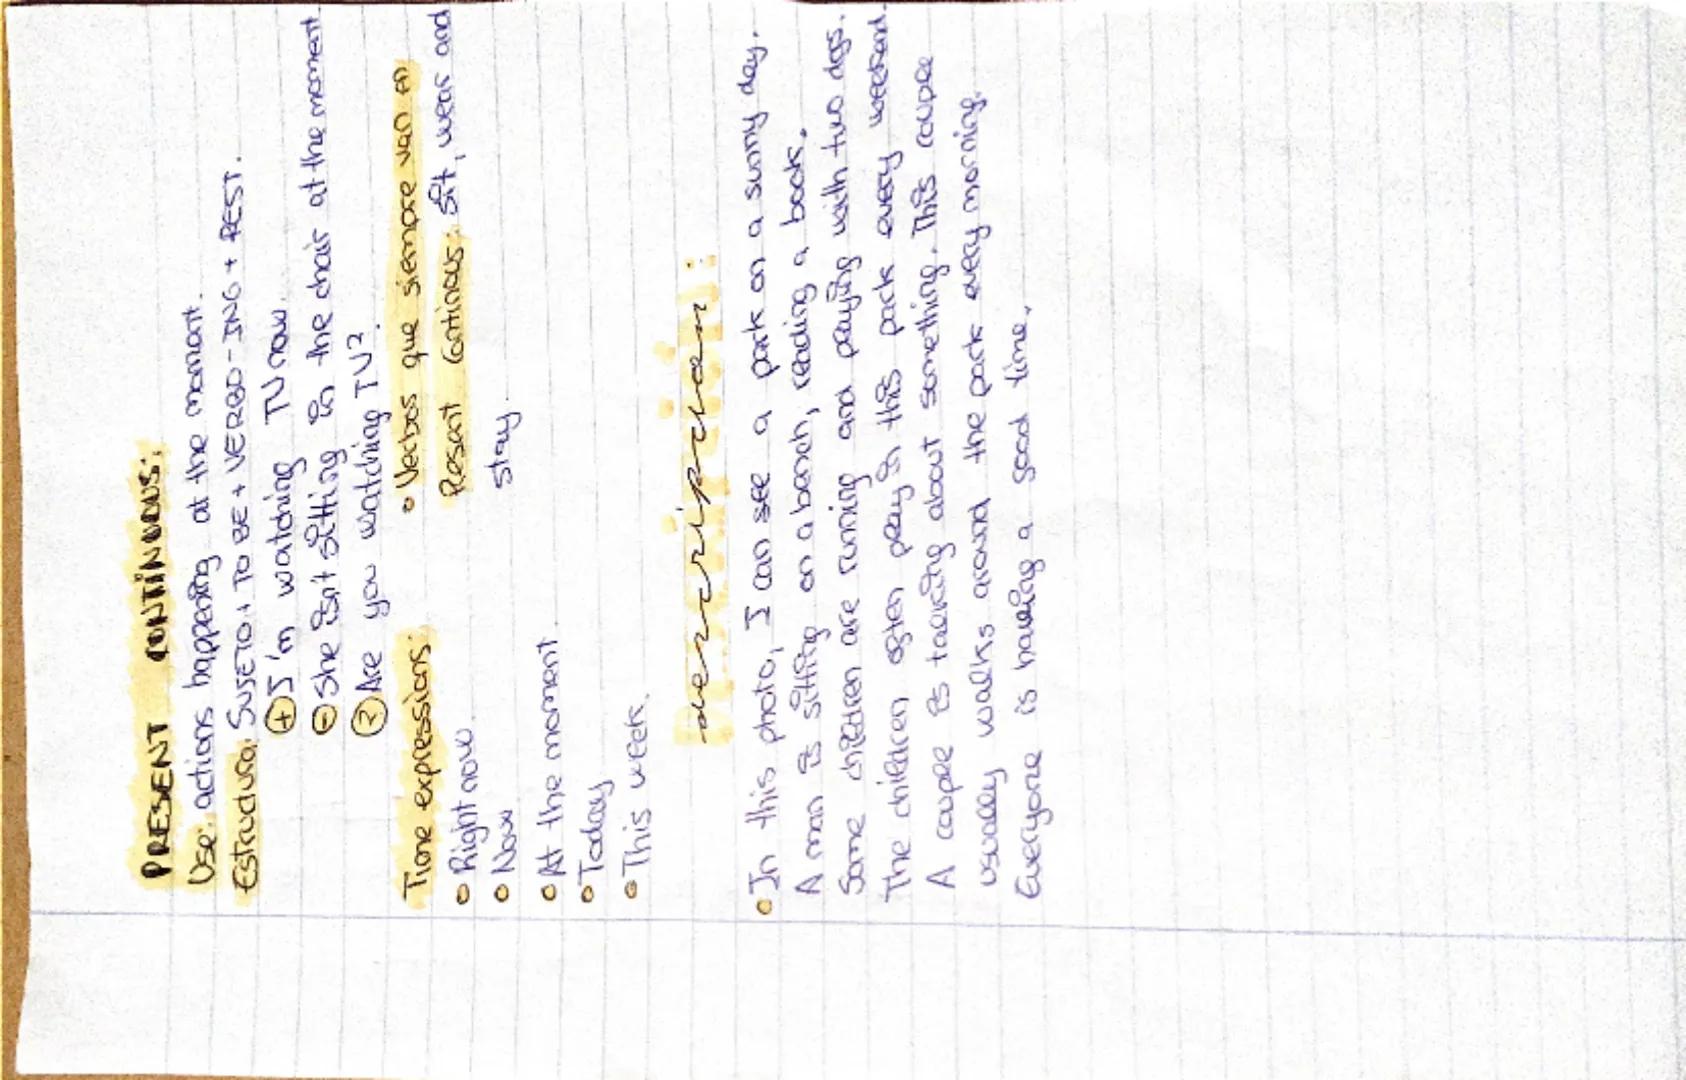 PRESENT CONTINUOUS:
Use: actions happening at the moment.
Estructura: SUJETO + TO BE + VERBO-ING + REST.
+ I'm watching TV now.
- She isn't sitting in the chair at the moment.
? Are you watching TV?
Time expressions:
• Right now.
• Now
• At the moment.
• Today
• This week.
• Verbos que siempre van en
Present Continous: Sit, wear and
stay.
description:
• In this photo, I can see a park on a sunny day.
A man is sitting on a bench, reading a book.
Some children are running and playing with two dogs.
The children often play in this park every weekend.
A couple is talking about something. This couple
usually walks around the park every morning.
Everyone is having a good time.